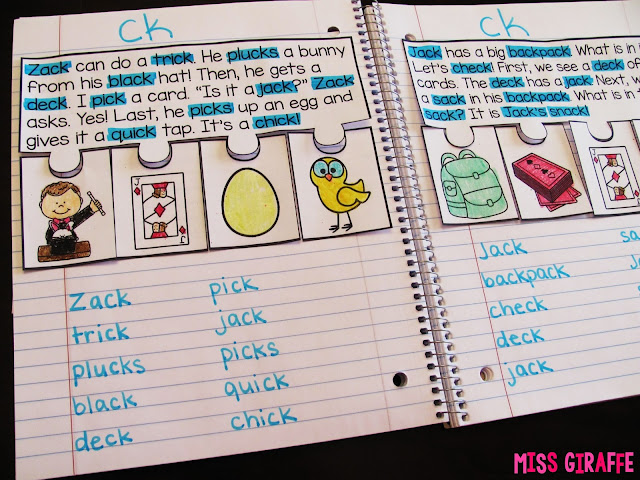 ck
Zack can do a trick. He plucks a bunny
from his black hat! Then, he gets a
deck. I pick a card. "Is it a jack?" Zack
asks. Yes! Last, he picks up an egg and
gives it a quick tap. It's a chick!
J
J
Zack
trick
plucks
black
deck
pick
jack
picks
quick
chick
ck
Jack has a big backpack. What is in
Let's check! First, we see a deck of
cards. The deck has a jack. Next, w
a sack in his backpack. What is in t
sack? It is Jack's snack!
Jack
backpack
check
deck
jack
sa
J
MISS GIRAFFE